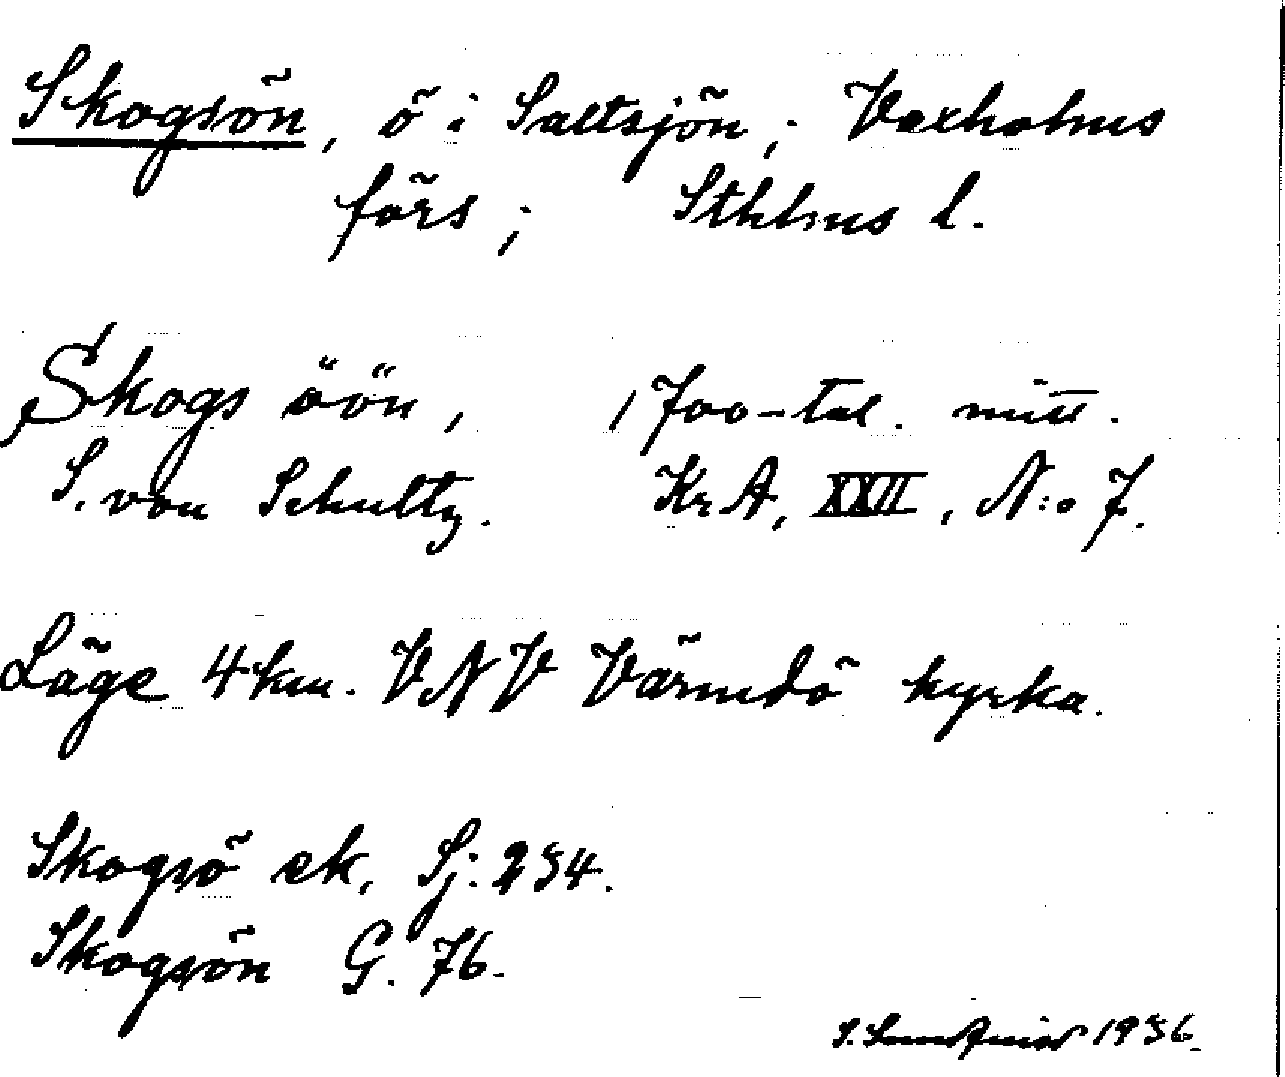 Skogsön, ö i Saltsjön; Vaxholms
förs; Sthlms l.
Skogs öön, 1700-tal. mitt.
S. von Schultz. Kr A, XXII, N:o 7.
Läge 4 km. VNV Värmdö kyrka.
Skogsö ek, Sj: 234.
Skogsön G. 76.
S. Lundqvist 1936.